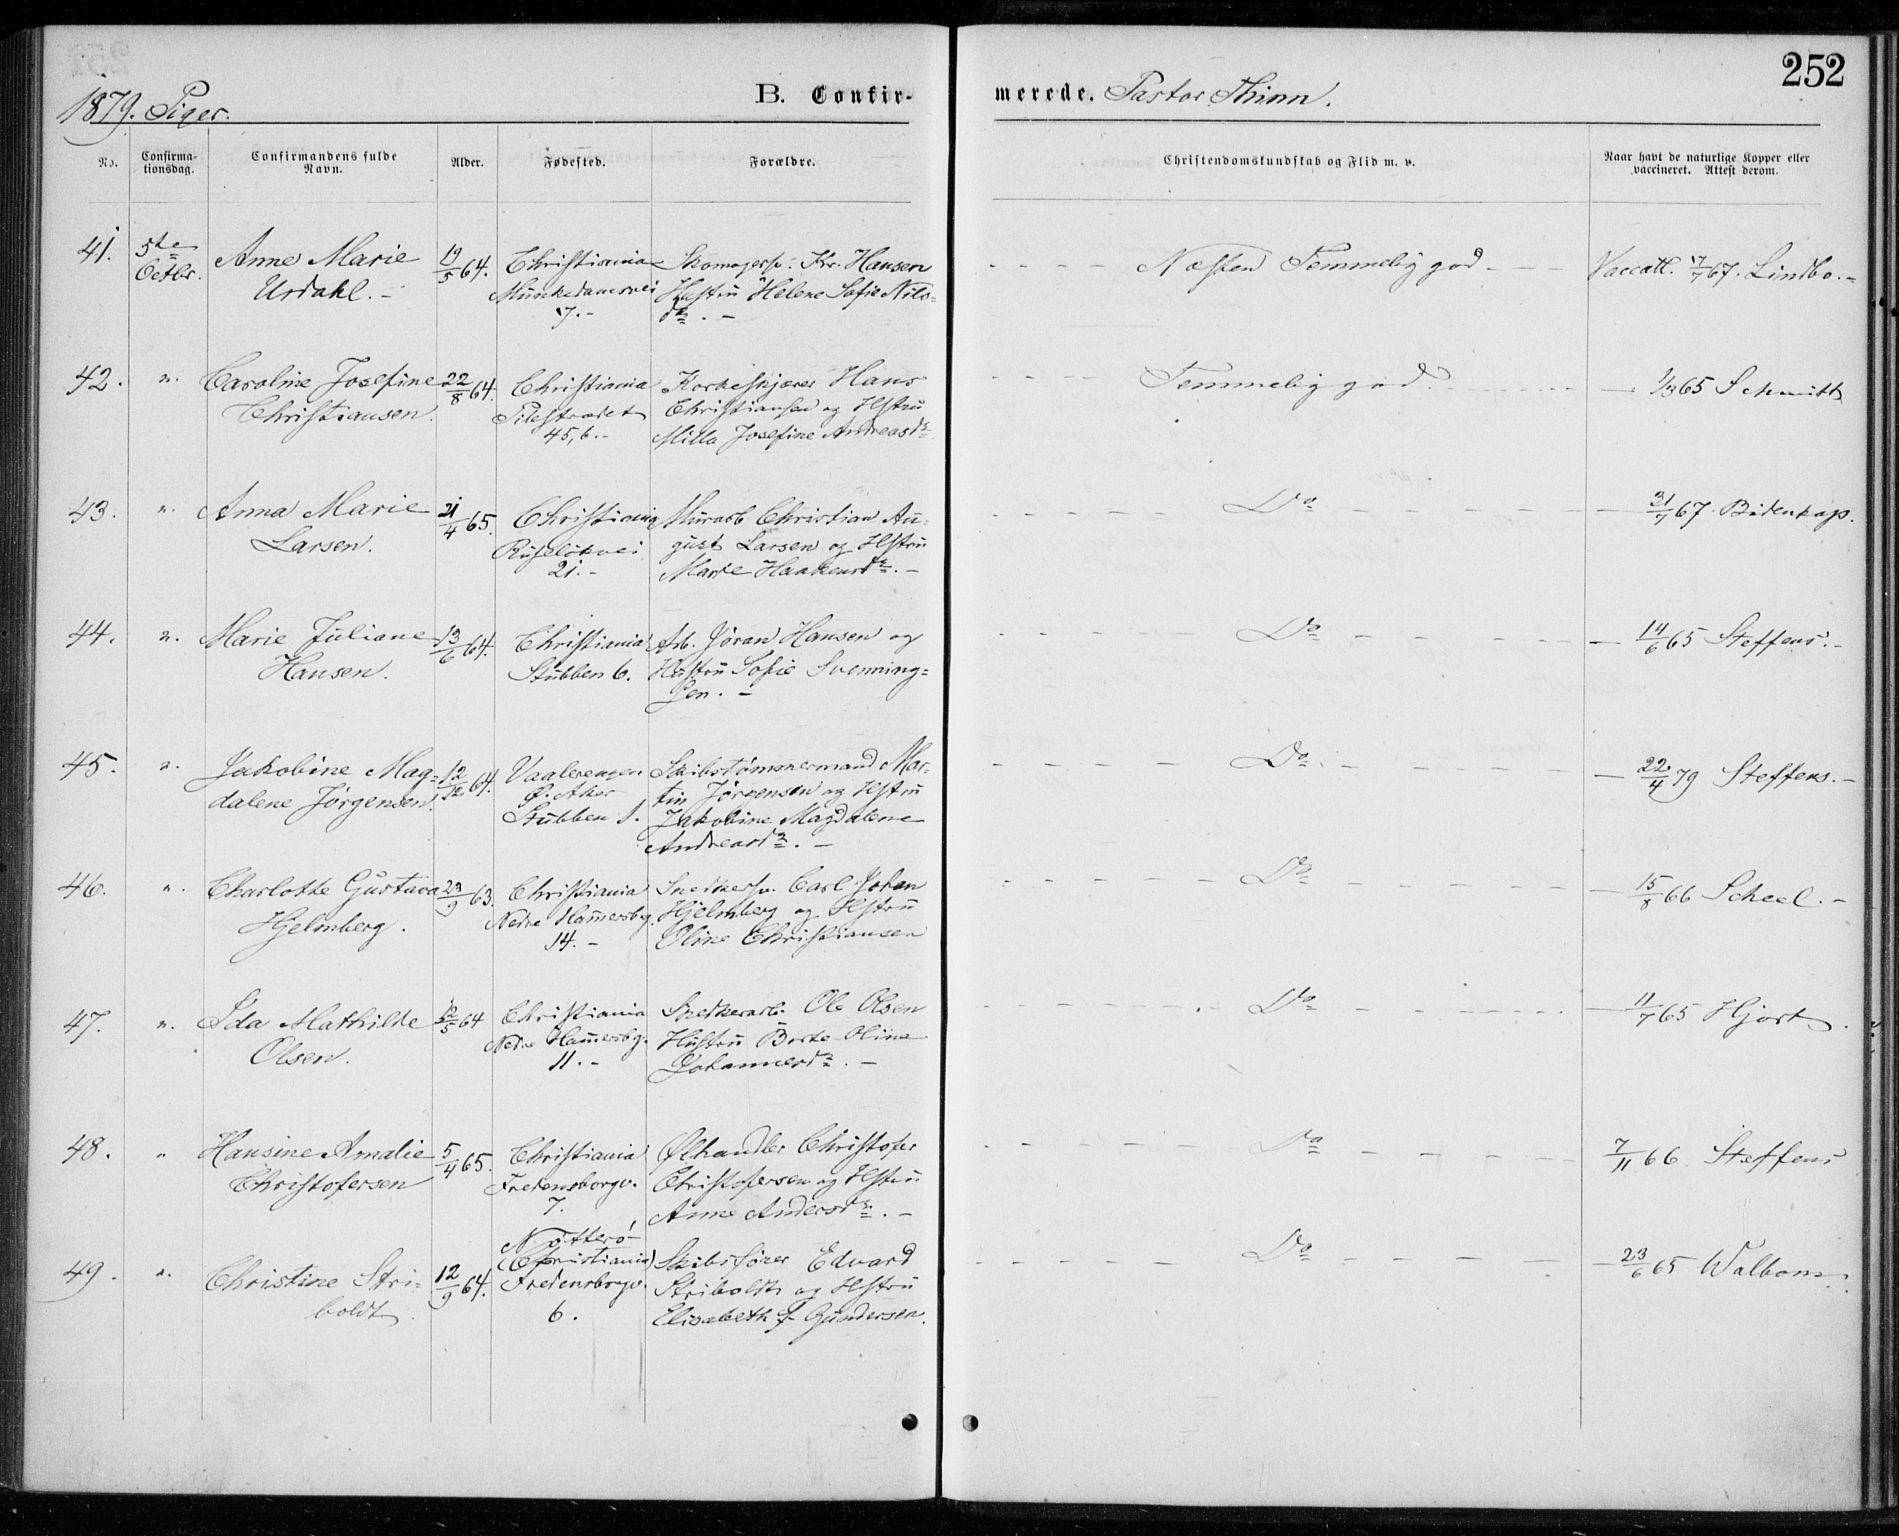 252
1879. Piger.
B. Confirmerede. Pastor Thinn.
No.
Confirmationsdag.
Confirmandens fulde Navn.
Alder.
Fødested.
Forældre.
Christendomskundskab og Flid m. v.
Naar havt de naturlige Kopper eller vaccineret. Attest derom.
41. 5te Octbr. Anne Marie Urdahl. 19/5 64. Christiania Munkedamsvei 7. Skomagersv. Kr. Hansen Hustru Helene Sofie Nilsdr. Næsten Temmelig god Vaccatt. 7/7 67. Lindbo.
42. " Caroline Josefine Christiansen. 22/8 64. Christiania Pilestrædet 45, 6. Korkeskjærer Hans Christiansen og Hstru Milla Josefine Andreasdr. Temmelig god. 1/3 65 Schmidt
43. " Anna Marie Larsen. 21/4 65. Christiania Ruseløkvei 21. Murarb Christian August Larsen og Hstru Marie Haakensdr. Do 31/7 67. Bidenkap.
44. " Marie Juliane Hansen. 13/6 64. Christiania Stubben 6. Arb. Jøran Hansen og Hustru Sofie Svenningsen. Do 14/6 65 Steffens.
45. " Jakobine Magdalene Jørgensen. 12/12 64. Vaalerengen Ø. Aker Stubben 1. Skibstømmermand Martin Jørgensen og Hstru Jakobine Magdalene Andreasdr. Do 22/4 79 Steffens.
46. " Charlotte Gustava Hjelmberg. 23/9 63. Christiania Nedre Hammersbg. 14. Snedkersv. Carl Johan Hjelmberg og Hstru Oline Christiansen Do 15/8 66 Scheel.
47. " Ida Mathilde Olsen. 12/5 64 Christiania Nedre Hammersbg. 11. Snedkerarb. Ole Olsen Hustru Berte Oline Johannesdr. Do 11/7 65 Hjort.
48. " Hansine Amalie Christofersen 5/4 65. Christiania Fredensborgv. 7. Ølhandler Christofer Christofersen og Hstru Anne Andersdr. Do 7/11 66 Steffens
49. " Christine Striboldt. 12/9 64. Nøtterø (Christiania) Fredensborgv. 6. Skibsfører Edvard Striboldt og Hstru Elisabeth f. Gundersen. Do 23/6 65 Walbom.